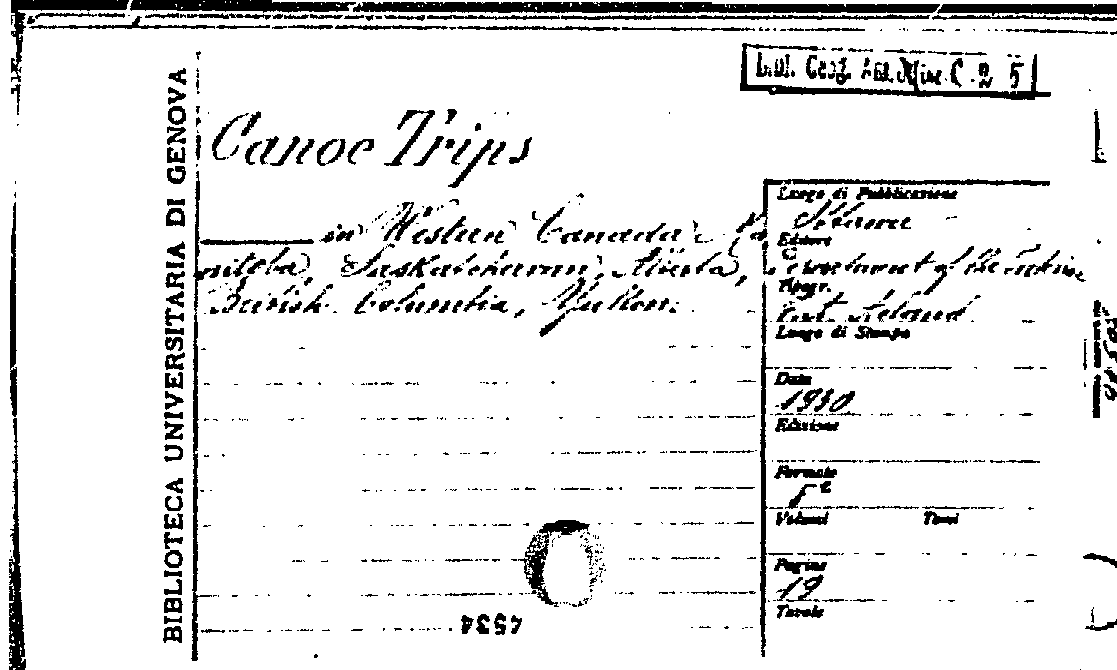 BIBLIOTECA UNIVERSITARIA DI GENOVA
C. 2 5
Canoe Trips
in Western Canada Ma
nitoba, Saskatchawan, Alberta,
British Columbia, Yukon.
Luogo di Pubblicazione
Ottawa
Editore
of the
Tipogr.
Luogo di Stampa
Data
1930
Edizione
Formato
Volumi Tomi
Pagine
19
Tavole
4534